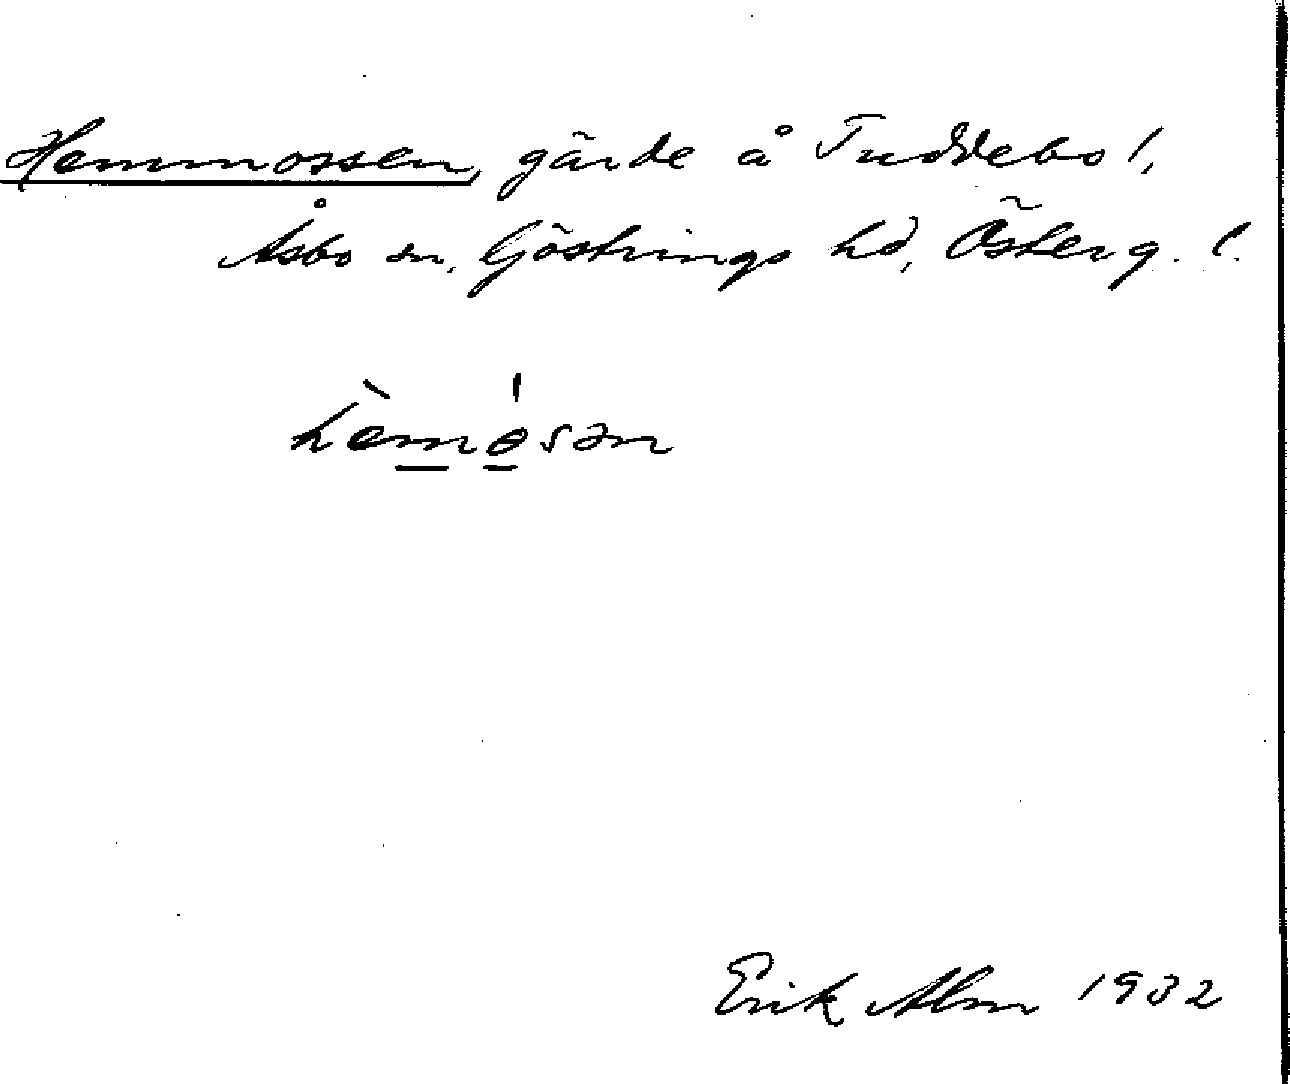 Hemmossen, gärde å Tuddebo 1,
Åsbo sn, Göstrings hd, Österg. l.
hèmǿsən
Erik Alm 1932